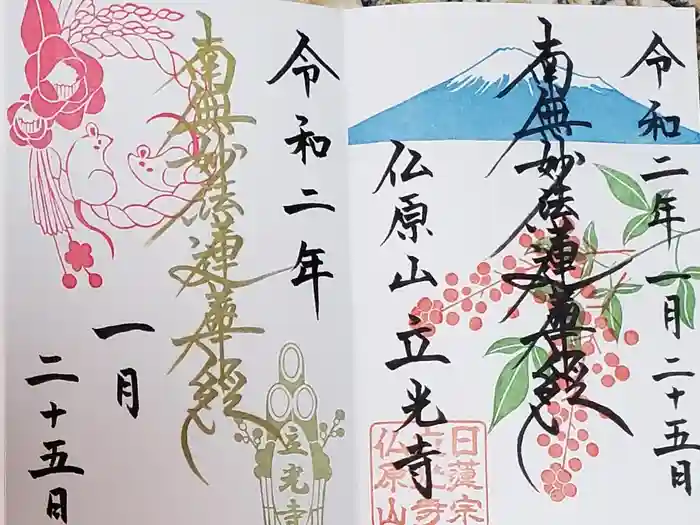 令和二年一月二十五日
南無妙法蓮華経
仏原山立光寺
日蓮宗
立光寺
仏原山
令和二年
南無妙法蓮華経
一月
二十五日
立光寺